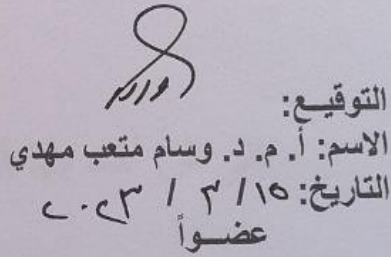 التوقيـع:
الاسم: أ. م. د. وسام متعب مهدي
التاريخ: ١٥ / ٣ / ٢٠٢٣
عضـواً